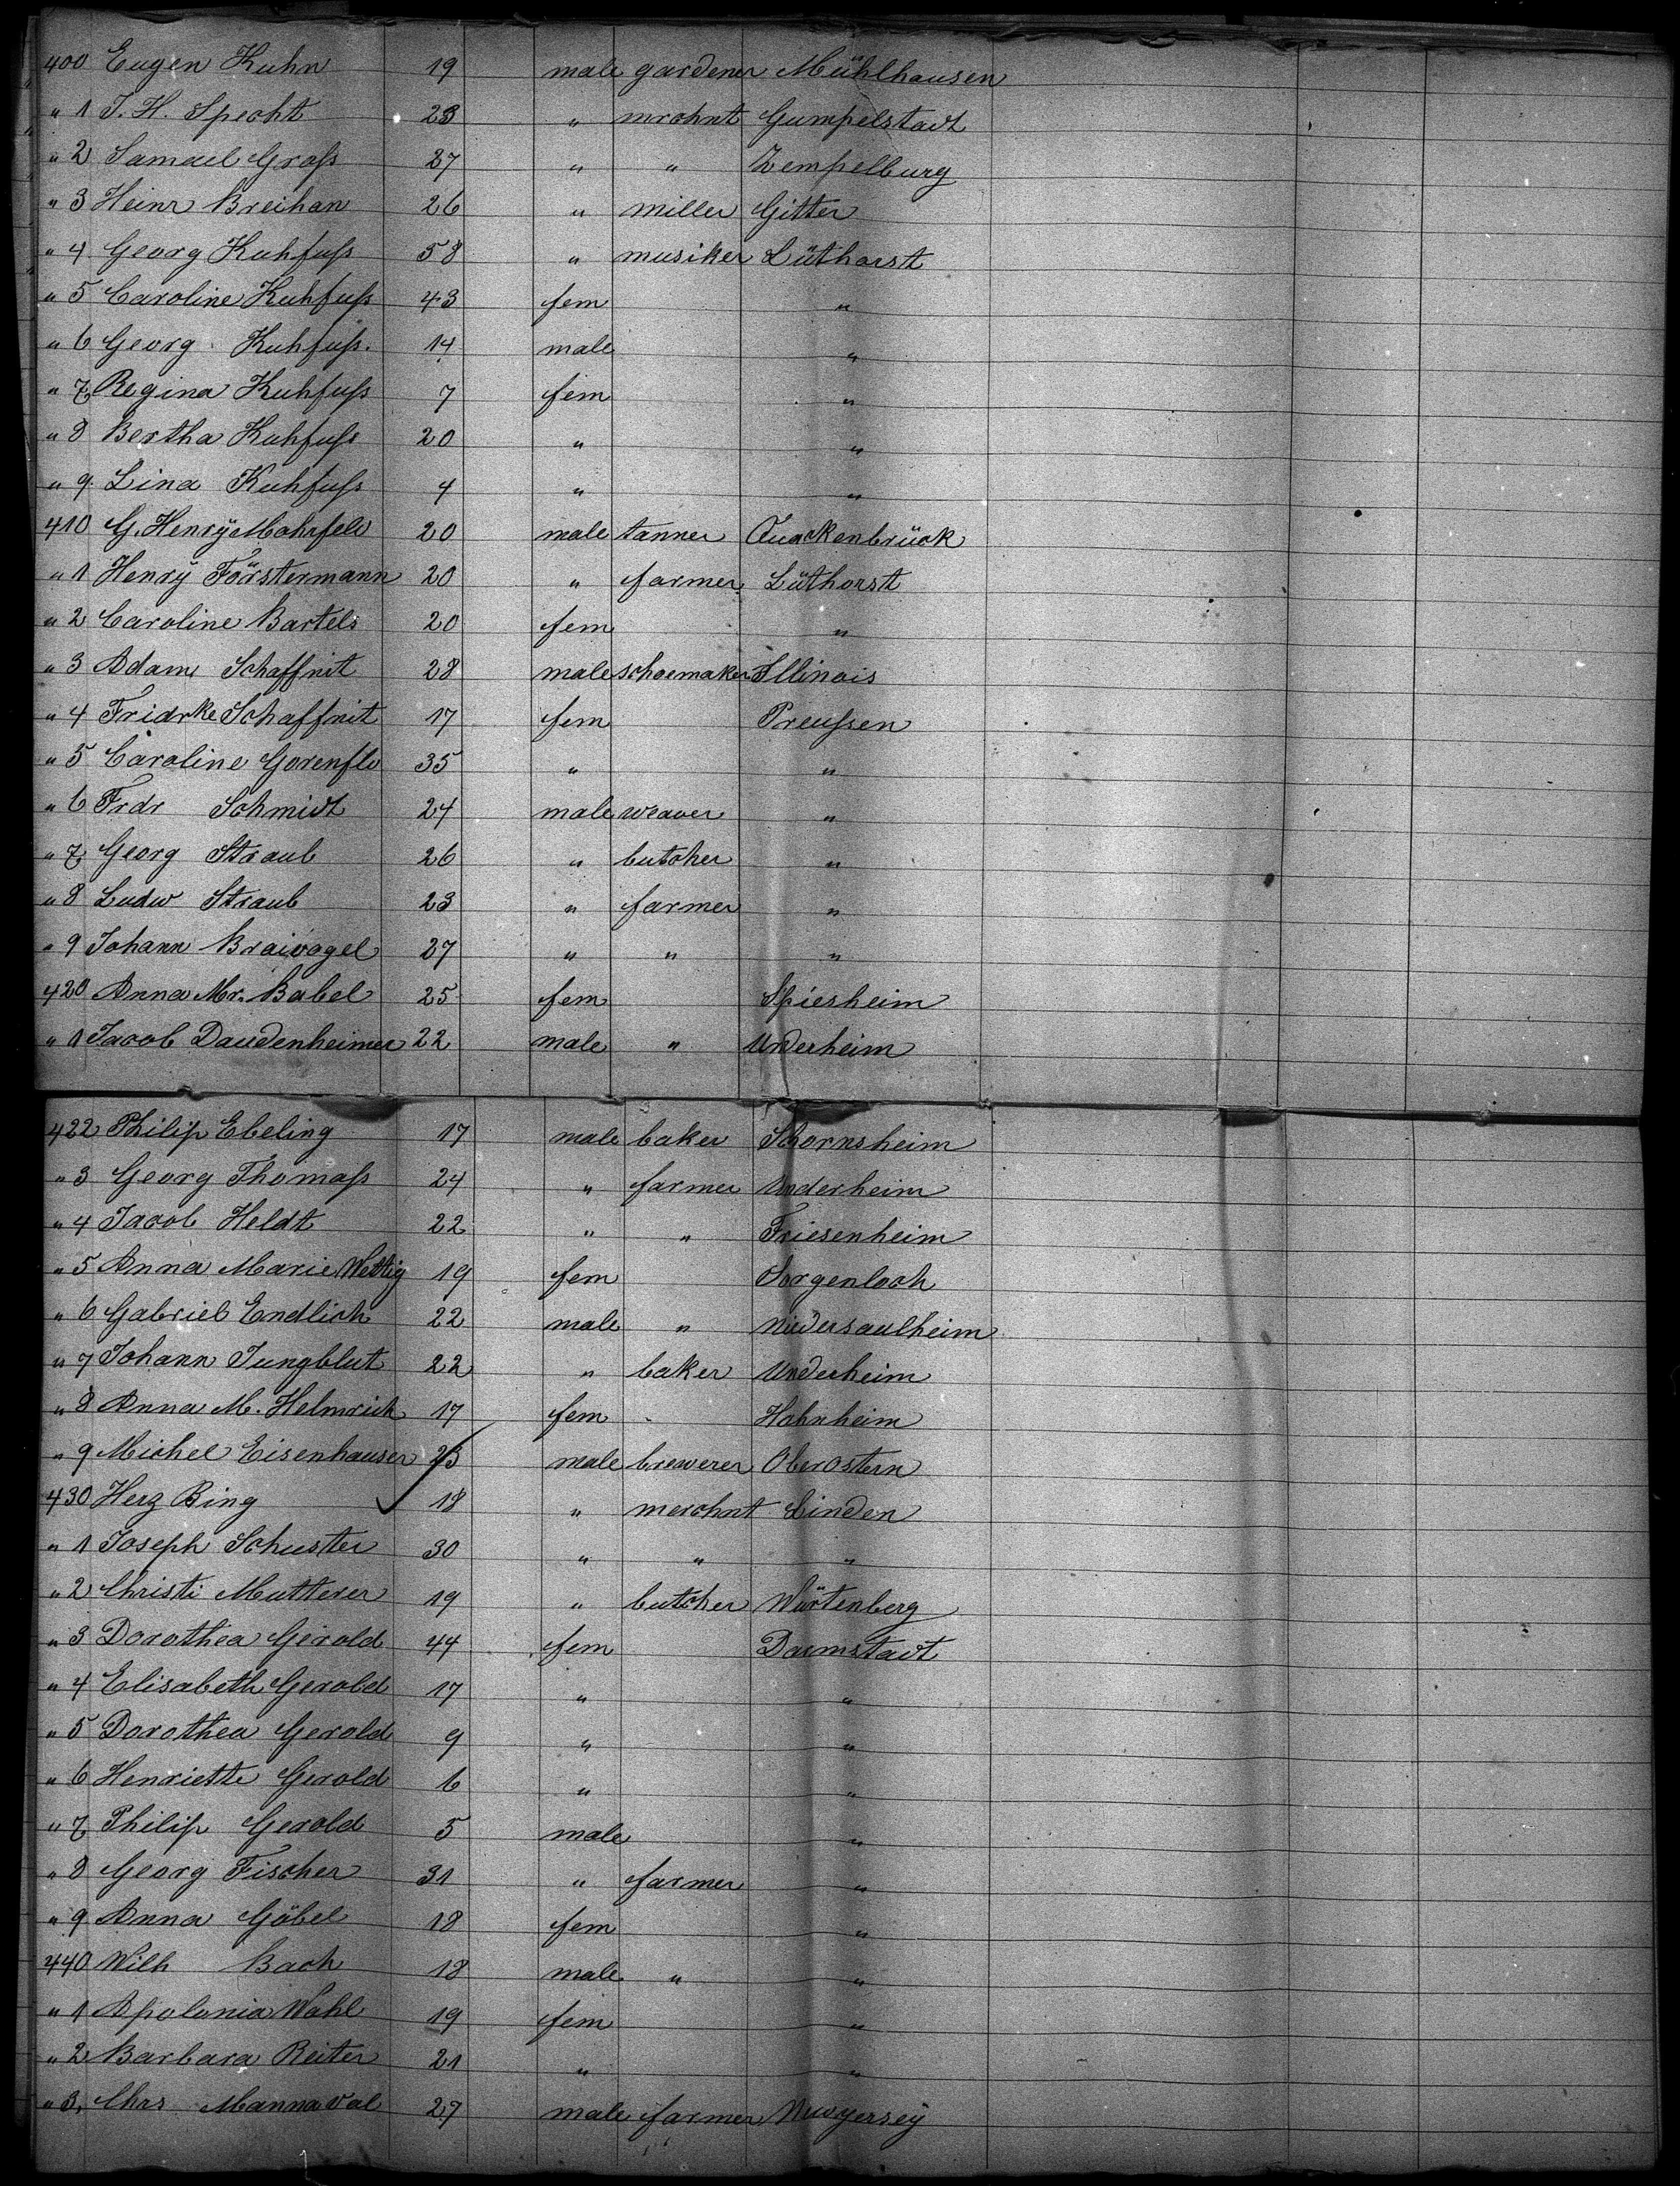 400 Eugen Kuhn 19 male gardener Mühlhausen
" 1 J. H. Specht 23 " mrchnt Gumpelstadt
" 2 Samuel Groß 27 " " Zempelburg
" 3 Heinr Breihan 26 " miller Gitter
" 4 Georg Kuhfuß 58 " musiker Lüthorst
" 5 Caroline Kuhfuß 43 fem "
" 6 Georg Kuhfuß. 14 male "
" 7 Regina Kuhfuß 7 fem "
" 8 Bertha Kuhfuß 20 " "
" 9. Lina Kuhfuß 4 " "
410 G. Henrÿ Mohrfeld 20 male tanner Quackenbrück
" 1 Henrÿ Förstermann 20 " farmer Lüthorst
" 2 Caroline Bartels 20 fem "
" 3 Adam Schaffnit 28 male schoemaker Illinois
" 4 Fridrke Schaffnit 17 fem Preußen
" 5 Caroline Gorenflo 35 " "
" 6 Frdr Schmidt 24 male weaver "
" 7 Georg Straub 26 " butcher "
" 8 Ludw Straub 23 " farmer "
" 9 Johann Braivogel 27 " " "
420 Anna Mr. Babel 25 fem Spiesheim
" 1 Jacob Daudenheimer 22 male " Underheim
422 Philip Ebeling 17 male baker Schornsheim
" 3 Georg Thomaß 24 " farmer Underheim
" 4 Jacob Heldt 22 " " Friesenheim
" 5 Anna Marie Wettig 19 fem Sorgenloch
" 6 Gabriel Endlich 22 male " Niedersaulheim
" 7 Johann Jungblut 22 " baker Underheim
" 8 Anna M. Helmrich 17 fem Hahnheim
" 9 Michel Eisenhauser 23 male brewerer Oberostern
430 Herz Bing 18 " merchnt Linden
" 1 Joseph Schuster 30 " " "
" 2 Christi Mutterer 19 " butcher Würtenberg
" 3 Dorothea Gerold 44 fem Darmstadt
" 4 Elisabeth Gerold 17 " "
" 5 Dorothea Gerold 9 " "
" 6 Henriette Gerold 6 " "
" 7 Philip Gerold 5 male "
" 8 Georg Fischer 31 " farmer "
" 9 Anna Göbel 18 fem "
440 Wilh Bach 18 male " "
" 1 Apolonia Wahl 19 fem "
" 2 Barbara Reiter 21 " "
" 3. Chrs Mannaval 27 male farmer Newyersey